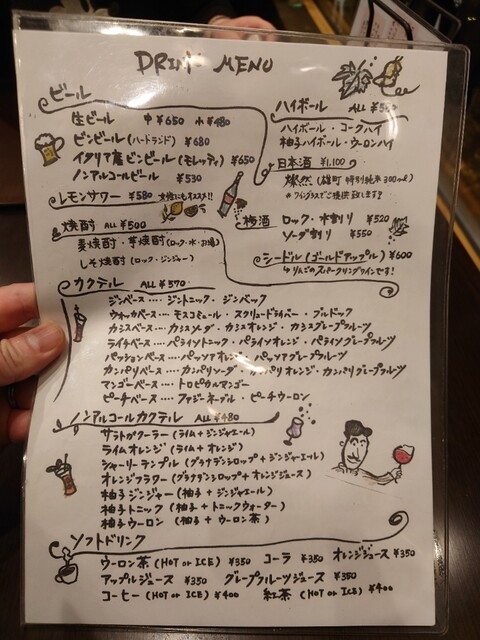 DRINK MENU
ビール
生ビール 中 ¥650 小 ¥480
ビンビール(ハートランド) ¥680
イタリア産ビンビール(モレッティ) ¥650
ノンアルコールビール ¥530
レモンサワー ¥580 女性にもオススメ!!
焼酎 ALL ¥500
麦焼酎・芋焼酎(ロック・水・お湯)
しそ焼酎(ロック・ジンジャー)
ハイボール ALL
ハイボール・コークハイ
柚子ハイボール・ウーロンハイ
日本酒 ¥1,100
燦然(雄町 特別純米 300ml)
*ワイングラスでご提供致します!
梅酒 ロック・水割り ¥520
ソーダ割り ¥550
シードル(ゴールドアップル) ¥600
りんごのスパークリングワインです!
カクテル ALL ¥570
ジンベース・・・・ジントニック・ジンバック
ウォッカベース・・・・モスコミュール・スクリュードライバー・ブルドック
カシスベース・・・・カシスソーダ・カシスオレンジ・カシスグレープフルーツ
ライチベース・・・・パライソトニック・パライソオレンジ・パライソグレープフルーツ
パッションベース・・・・パッソアオレンジ・パッソアグレープフルーツ
カンパリベース・・・・カンパリソーダ・カンパリオレンジ・カンパリグレープフルーツ
マンゴーベース・・・・トロピカルマンゴー
ピーチベース・・・・ファジーネーブル・ピーチウーロン
ノンアルコールカクテル ALL ¥480
サラトガクーラー(ライム+ジンジャエール)
ライムオレンジ(ライム+オレンジ)
シャーリーテンプル(グラナデンシロップ+ジンジャーエール)
オレンジフラワー(グラナデンシロップ+オレンジジュース)
柚子ジンジャー(柚子+ジンジャエール)
柚子トニック(柚子+トニックウォーター)
柚子ウーロン(柚子+ウーロン茶)
ソフトドリンク
ウーロン茶(HOT or ICE) ¥350 コーラ ¥350 オレンジジュース ¥350
アップルジュース ¥350 グレープフルーツジュース ¥350
コーヒー(HOT or ICE) ¥400 紅茶(HOT or ICE) ¥400